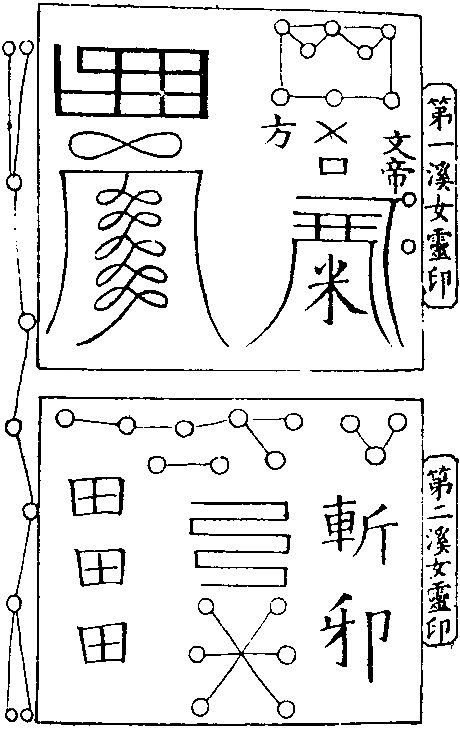 第一溪女靈印
文帝
方
米
第二溪女靈印
斬邪
田
田
田